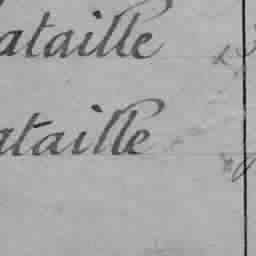 ataille
ataille